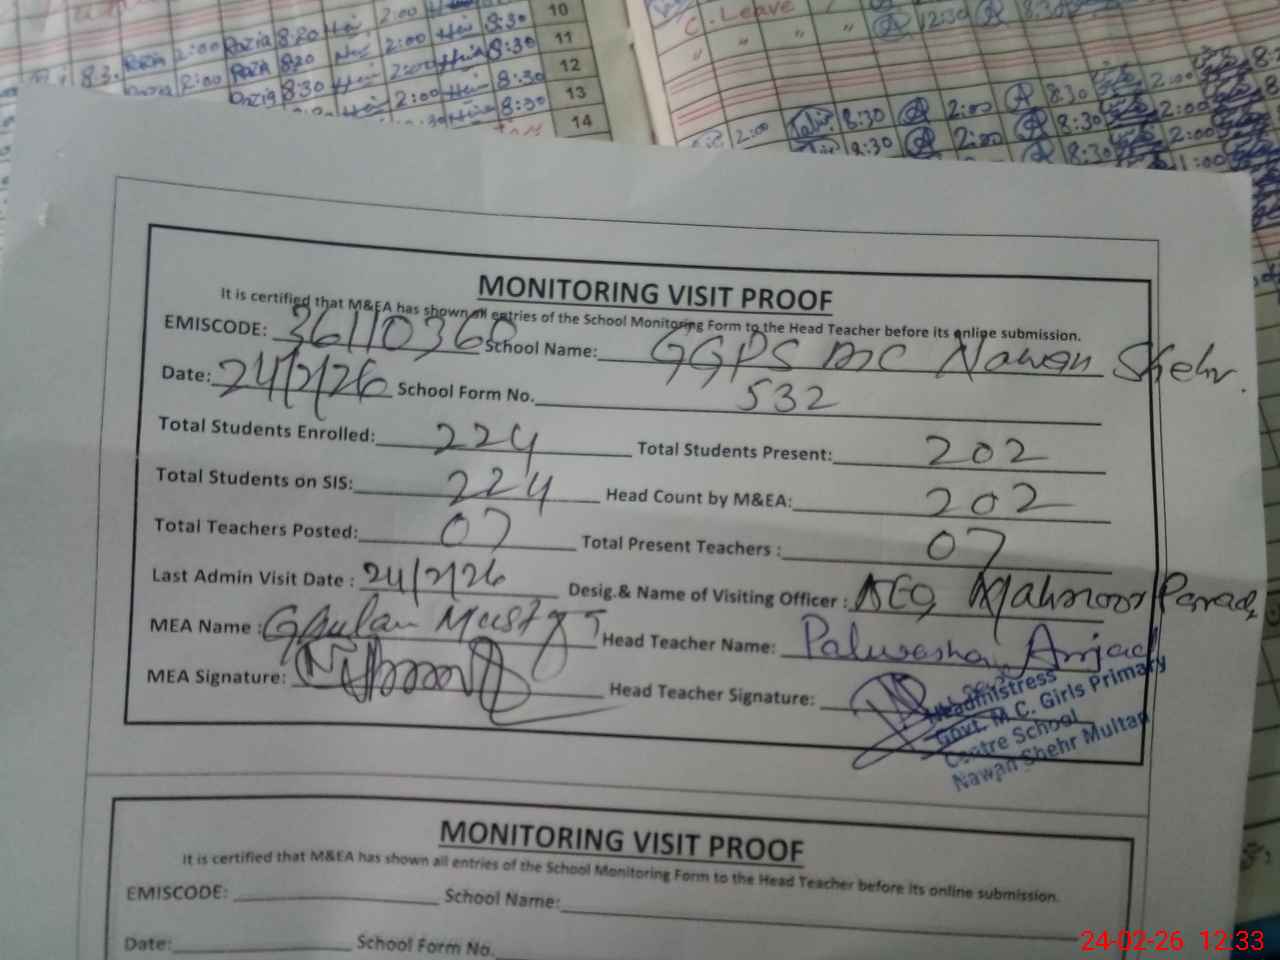 10
11
12
13
14
C. Leave
2:00 Razia 8:20 2:00 8:30
8:3. Razia 2:00 Razia 8:20 2:00 8:30
Razia 8:30 2:00 8:30
8:30
12:30
2:00 8:30 2:00 8:30 2:00
8:30 2:00 8:30 2:00
1:00
MONITORING VISIT PROOF
It is certified that M&EA has shown all entries of the School Monitoring Form to the Head Teacher before its online submission.
EMISCODE: 36110360 School Name: GGPS MC Nawan Shehr.
Date: 24/2/26 School Form No. 532
Total Students Enrolled: 224 Total Students Present: 202
Total Students on SIS: 224 Head Count by M&EA: 202
Total Teachers Posted: 07 Total Present Teachers : 07
Last Admin Visit Date : 24/2/26 Desig.& Name of Visiting Officer : AEO Mahnoor
MEA Name : Ghulam Mustafa Head Teacher Name: Palwasha Amjad
MEA Signature: Head Teacher Signature:
Headmistress
Govt. M.C. Girls Primary
Centre School
Nawan Shehr Multan
MONITORING VISIT PROOF
It is certified that M&EA has shown all entries of the School Monitoring Form to the Head Teacher before its online submission.
EMISCODE: School Name:
Date: School Form No.
24-02-26 12:33